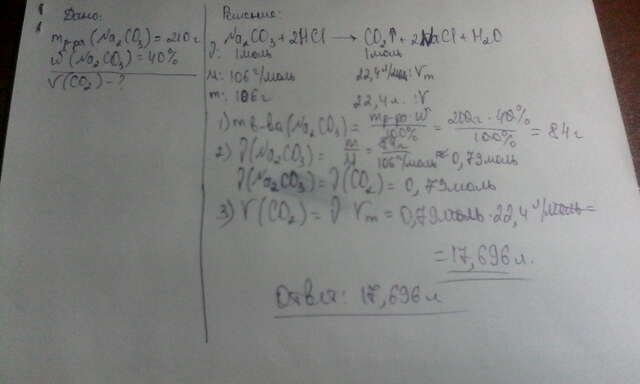 Дано:
m р-ра (Na₂CO₃) = 210г
W (Na₂CO₃) = 40%
V(CO₂) - ?
Решение:
Na₂CO₃ + 2HCl → CO₂↑ + 2NaCl + H₂O
ν: 1моль 1моль
M: 106 г/моль 22,4 л/моль : Vm
m: 106г 22,4 л. : V
1) m в-ва (Na₂CO₃) = mр-ра · W / 100% = 210г · 40% / 100% = 84г
2) ν (Na₂CO₃) = m / M = 84г / 106 г/моль ≈ 0,79моль
ν (Na₂CO₃) = ν (CO₂) = 0,79моль
3) V (CO₂) = ν Vm = 0,79моль · 22,4 л/моль =
= 17,696 л.
Ответ: 17,696 л